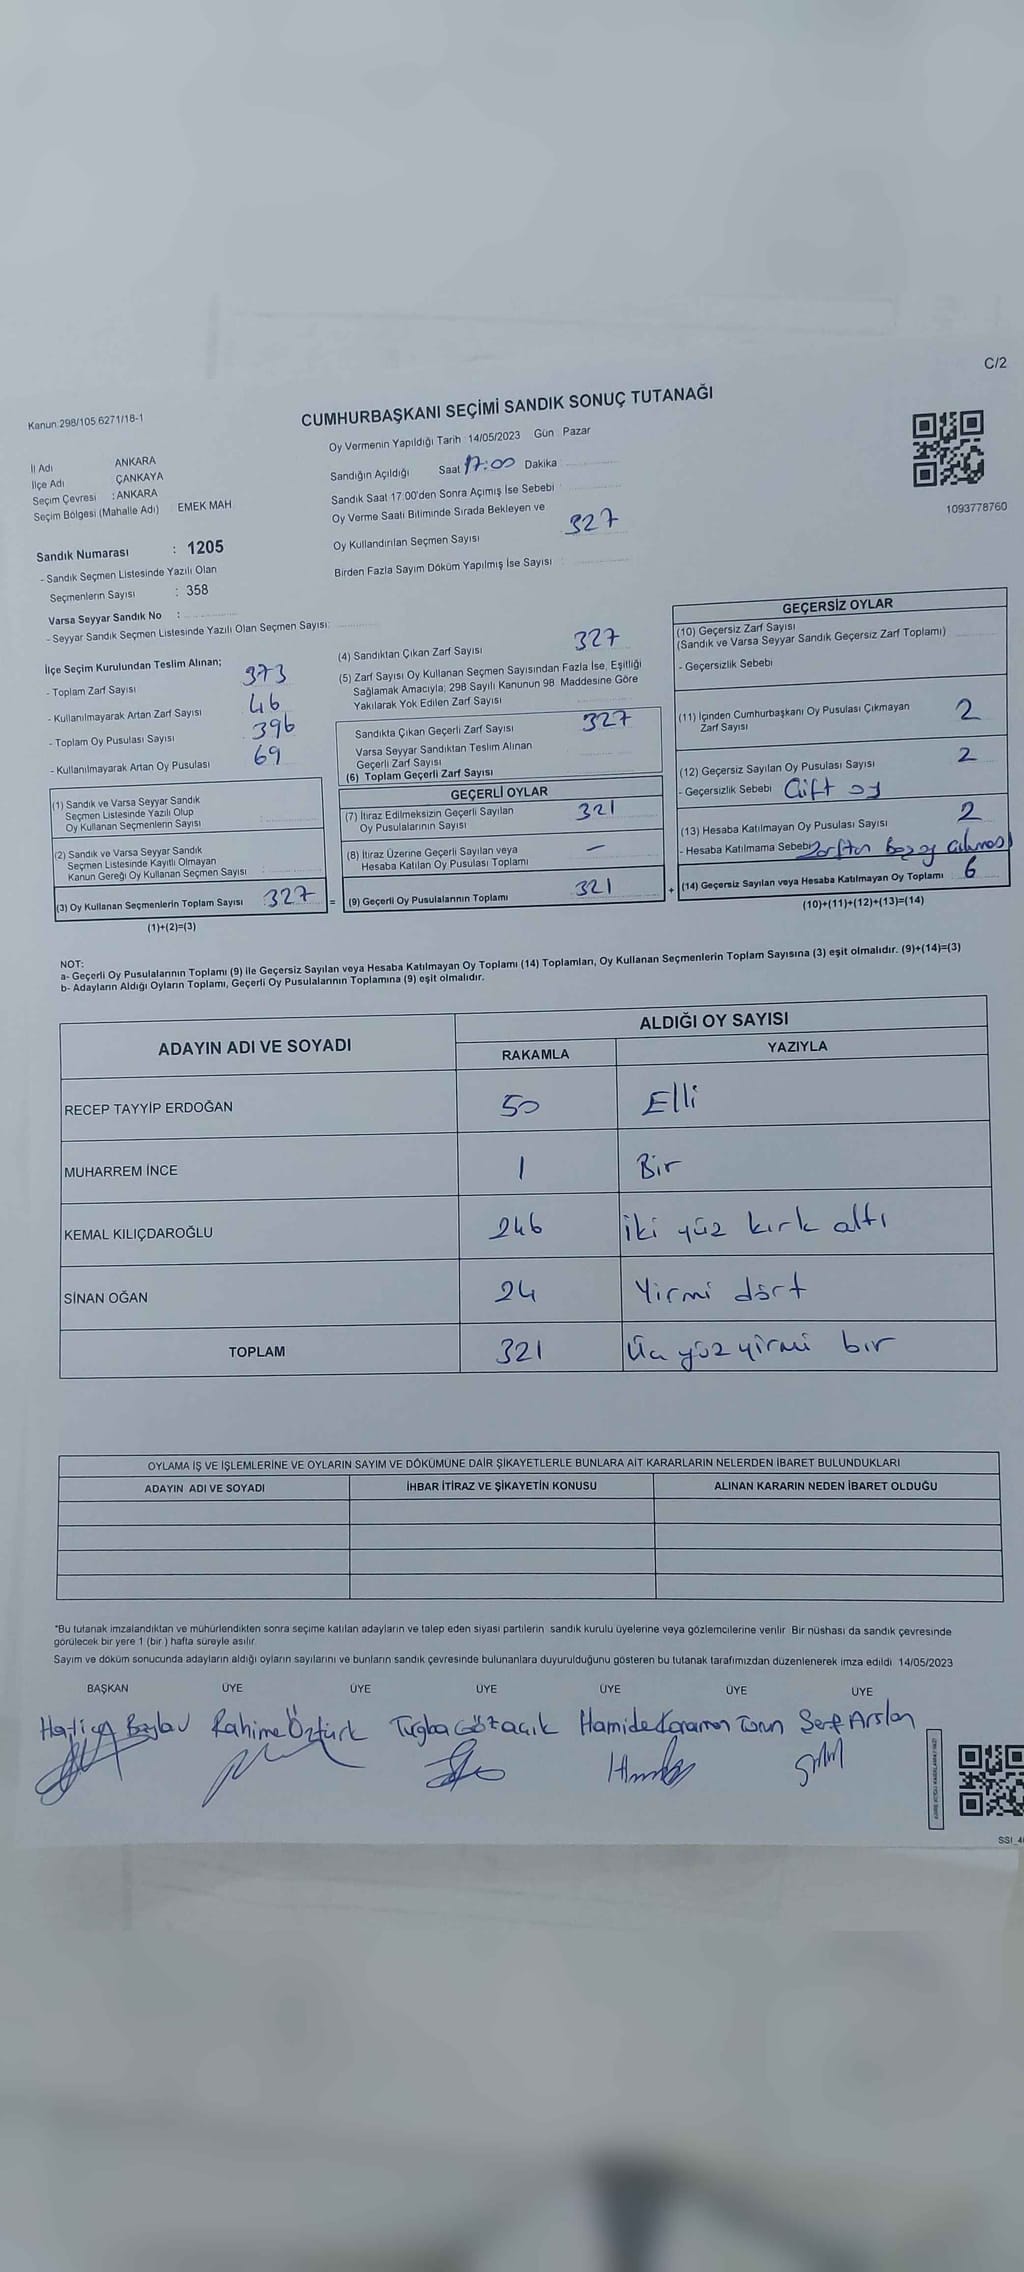 C/2
Kanun:298/105 6271/18-1
CUMHURBAŞKANI SEÇİMİ SANDIK SONUÇ TUTANAĞI
Oy Vermenin Yapıldığı Tarih : 14/05/2023 Gün : Pazar
İl Adı ANKARA
İlçe Adı ÇANKAYA
Seçim Çevresi : ANKARA
Seçim Bölgesi (Mahalle Adı) EMEK MAH
Sandığın Açıldığı Saat 17:00 Dakika
Sandık Saat 17:00'den Sonra Açımış İse Sebebi
Oy Verme Saati Bitiminde Sırada Bekleyen ve
Oy Kullandırılan Seçmen Sayısı 327
Birden Fazla Sayım Döküm Yapılmış İse Sayısı :
1093778760
Sandık Numarası : 1205
- Sandık Seçmen Listesinde Yazılı Olan
Seçmenlerin Sayısı : 358
Varsa Seyyar Sandık No :
- Seyyar Sandık Seçmen Listesinde Yazılı Olan Seçmen Sayısı:
İlçe Seçim Kurulundan Teslim Alınan;
- Toplam Zarf Sayısı 373
- Kullanılmayarak Artan Zarf Sayısı 46
- Toplam Oy Pusulası Sayısı 396
- Kullanılmayarak Artan Oy Pusulası 69
(1) Sandık ve Varsa Seyyar Sandık
Seçmen Listesinde Yazılı Olup
Oy Kullanan Seçmenlerin Sayısı :
(2) Sandık ve Varsa Seyyar Sandık
Seçmen Listesinde Kayıtlı Olmayan
Kanun Gereği Oy Kullanan Seçmen Sayısı
(3) Oy Kullanan Seçmenlerin Toplam Sayısı : 327 =
(1)+(2)=(3)
(4) Sandıktan Çıkan Zarf Sayısı 327
(5) Zarf Sayısı Oy Kullanan Seçmen Sayısından Fazla İse, Eşitliği
Sağlamak Amacıyla; 298 Sayılı Kanunun 98. Maddesine Göre
Yakılarak Yok Edilen Zarf Sayısı
Sandıkta Çıkan Geçerli Zarf Sayısı 327
Varsa Seyyar Sandıktan Teslim Alınan
Geçerli Zarf Sayısı
(6) Toplam Geçerli Zarf Sayısı
GEÇERLİ OYLAR
(7) İtiraz Edilmeksizin Geçerli Sayılan
Oy Pusulalarının Sayısı 321
(8) İtiraz Üzerine Geçerli Sayılan veya
Hesaba Katılan Oy Pusulası Toplamı —
(9) Geçerli Oy Pusulalarının Toplamı 321 +
GEÇERSİZ OYLAR
(10) Geçersiz Zarf Sayısı
(Sandık ve Varsa Seyyar Sandık Geçersiz Zarf Toplamı)
- Geçersizlik Sebebi
(11) İçinden Cumhurbaşkanı Oy Pusulası Çıkmayan
Zarf Sayısı 2
(12) Geçersiz Sayılan Oy Pusulası Sayısı 2
- Geçersizlik Sebebi Çift oy
(13) Hesaba Katılmayan Oy Pusulası Sayısı 2
- Hesaba Katılmama Sebebi Zarftan Boş oy çıkması
(14) Geçersiz Sayılan veya Hesaba Katılmayan Oy Toplamı : 6
(10)+(11)+(12)+(13)=(14)
NOT:
a- Geçerli Oy Pusulalarının Toplamı (9) ile Geçersiz Sayılan veya Hesaba Katılmayan Oy Toplamı (14) Toplamları, Oy Kullanan Seçmenlerin Toplam Sayısına (3) eşit olmalıdır. (9)+(14)=(3)
b- Adayların Aldığı Oyların Toplamı, Geçerli Oy Pusulalarının Toplamına (9) eşit olmalıdır.
ADAYIN ADI VE SOYADI ALDIĞI OY SAYISI
RAKAMLA YAZIYLA
RECEP TAYYİP ERDOĞAN 50 Elli
MUHARREM İNCE 1 Bir
KEMAL KILIÇDAROĞLU 246 iki yüz kırk altı
SİNAN OĞAN 24 Yirmi dört
TOPLAM 321 Üç yüz yirmi bir
OYLAMA İŞ VE İŞLEMLERİNE VE OYLARIN SAYIM VE DÖKÜMÜNE DAİR ŞİKAYETLERLE BUNLARA AİT KARARLARIN NELERDEN İBARET BULUNDUKLARI
ADAYIN ADI VE SOYADI İHBAR İTİRAZ VE ŞİKAYETİN KONUSU ALINAN KARARIN NEDEN İBARET OLDUĞU
*Bu tutanak imzalandıktan ve mühürlendikten sonra seçime katılan adayların ve talep eden siyasi partilerin sandık kurulu üyelerine veya gözlemcilerine verilir Bir nüshası da sandık çevresinde
görülecek bir yere 1 (bir ) hafta süreyle asılır.
Sayım ve döküm sonucunda adayların aldığı oyların sayılarını ve bunların sandık çevresinde bulunanlara duyurulduğunu gösteren bu tutanak tarafımızdan düzenlenerek imza edildi. 14/05/2023
BAŞKAN ÜYE ÜYE ÜYE ÜYE ÜYE ÜYE
Rahime Öztürk Tuğba Gözaçık Hamide Karaman Torun Sert Arslan
SSI_4